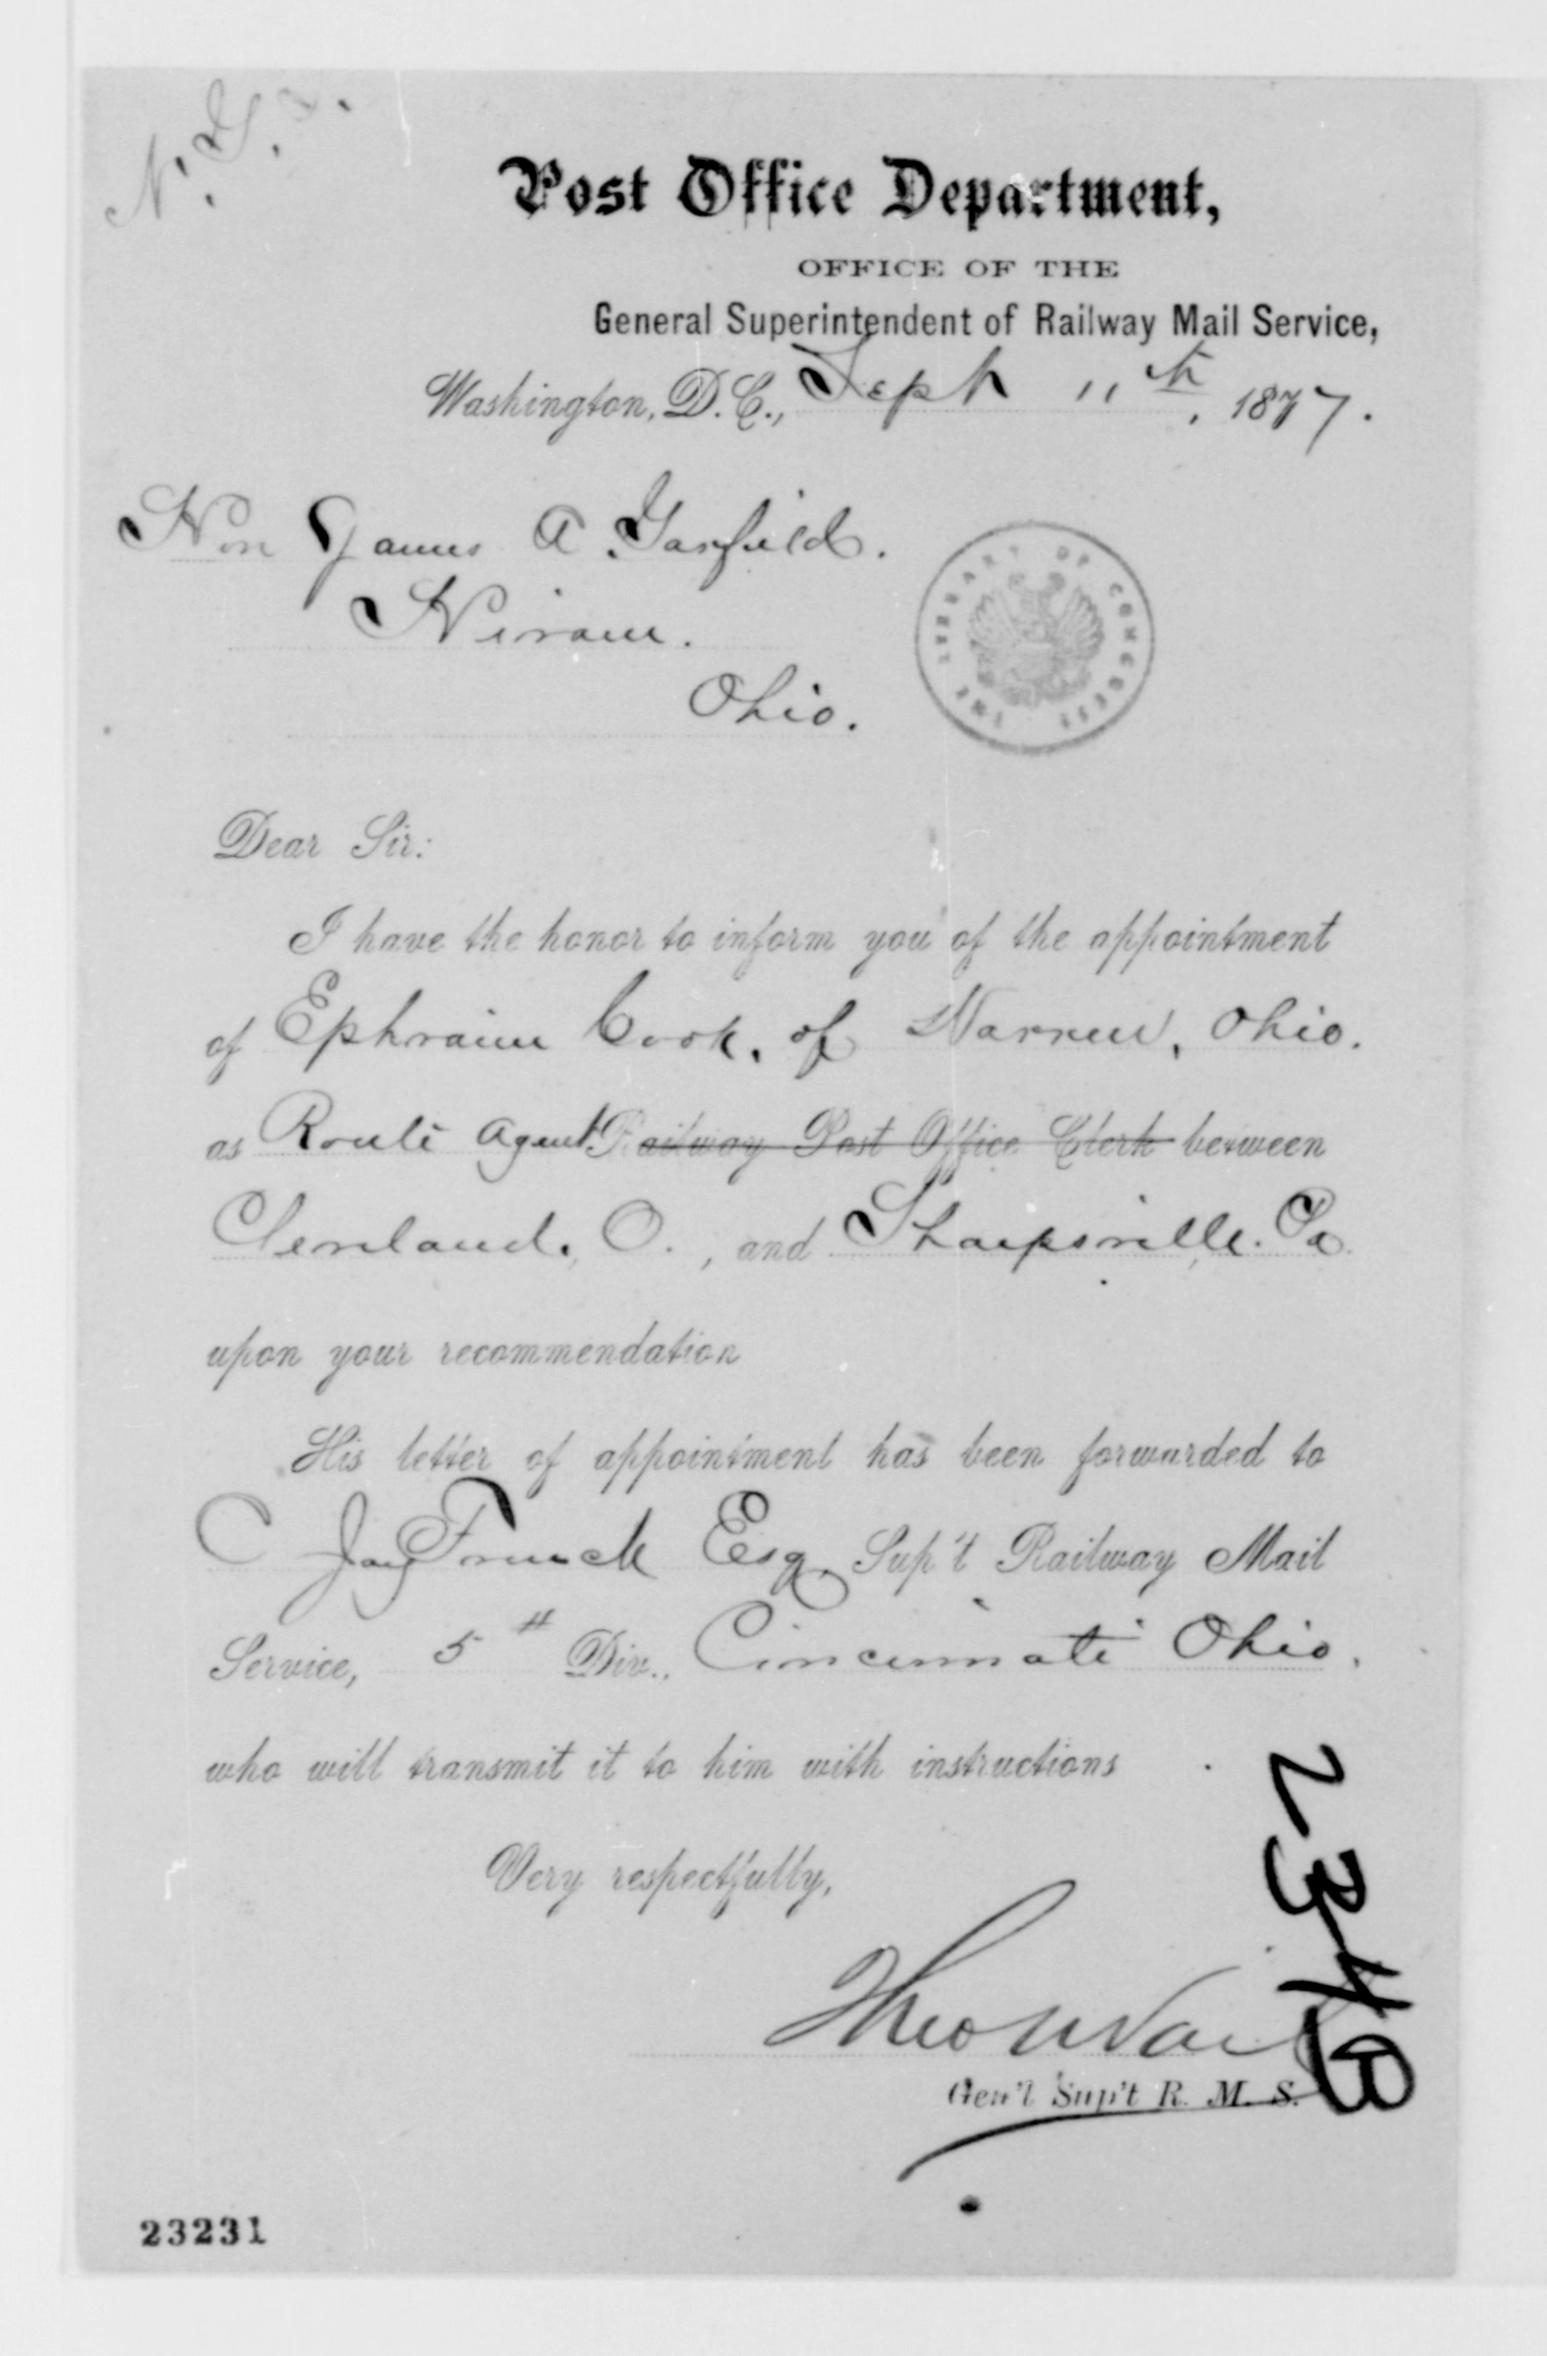 N. G.
Post Office Department,
OFFICE OF THE
General Superintendent of Railway Mail Service,
Washington, D.C., Sept 11th, 1877.
Hon James A. Garfield.
Hiram.
Ohio.
THE LIBRARY OF CONGRESS
Dear Sir:
I have the honor to inform you of the appointment
of Ephraim Cook, of Warren, Ohio.
as Route Agent Railway Post Office Clerk between
Cleveland, O., and Sharpsville. Pa.
upon your recommendation
His letter of appointment has been forwarded to
C Jay French Esq. Sup't Railway Mail
Service, 5th Div., Cincinnati Ohio.
who will transmit it to him with instructions.
Very respectfully,
Theo N Vail
Gen'l Sup't R. M. S.
2348
23231